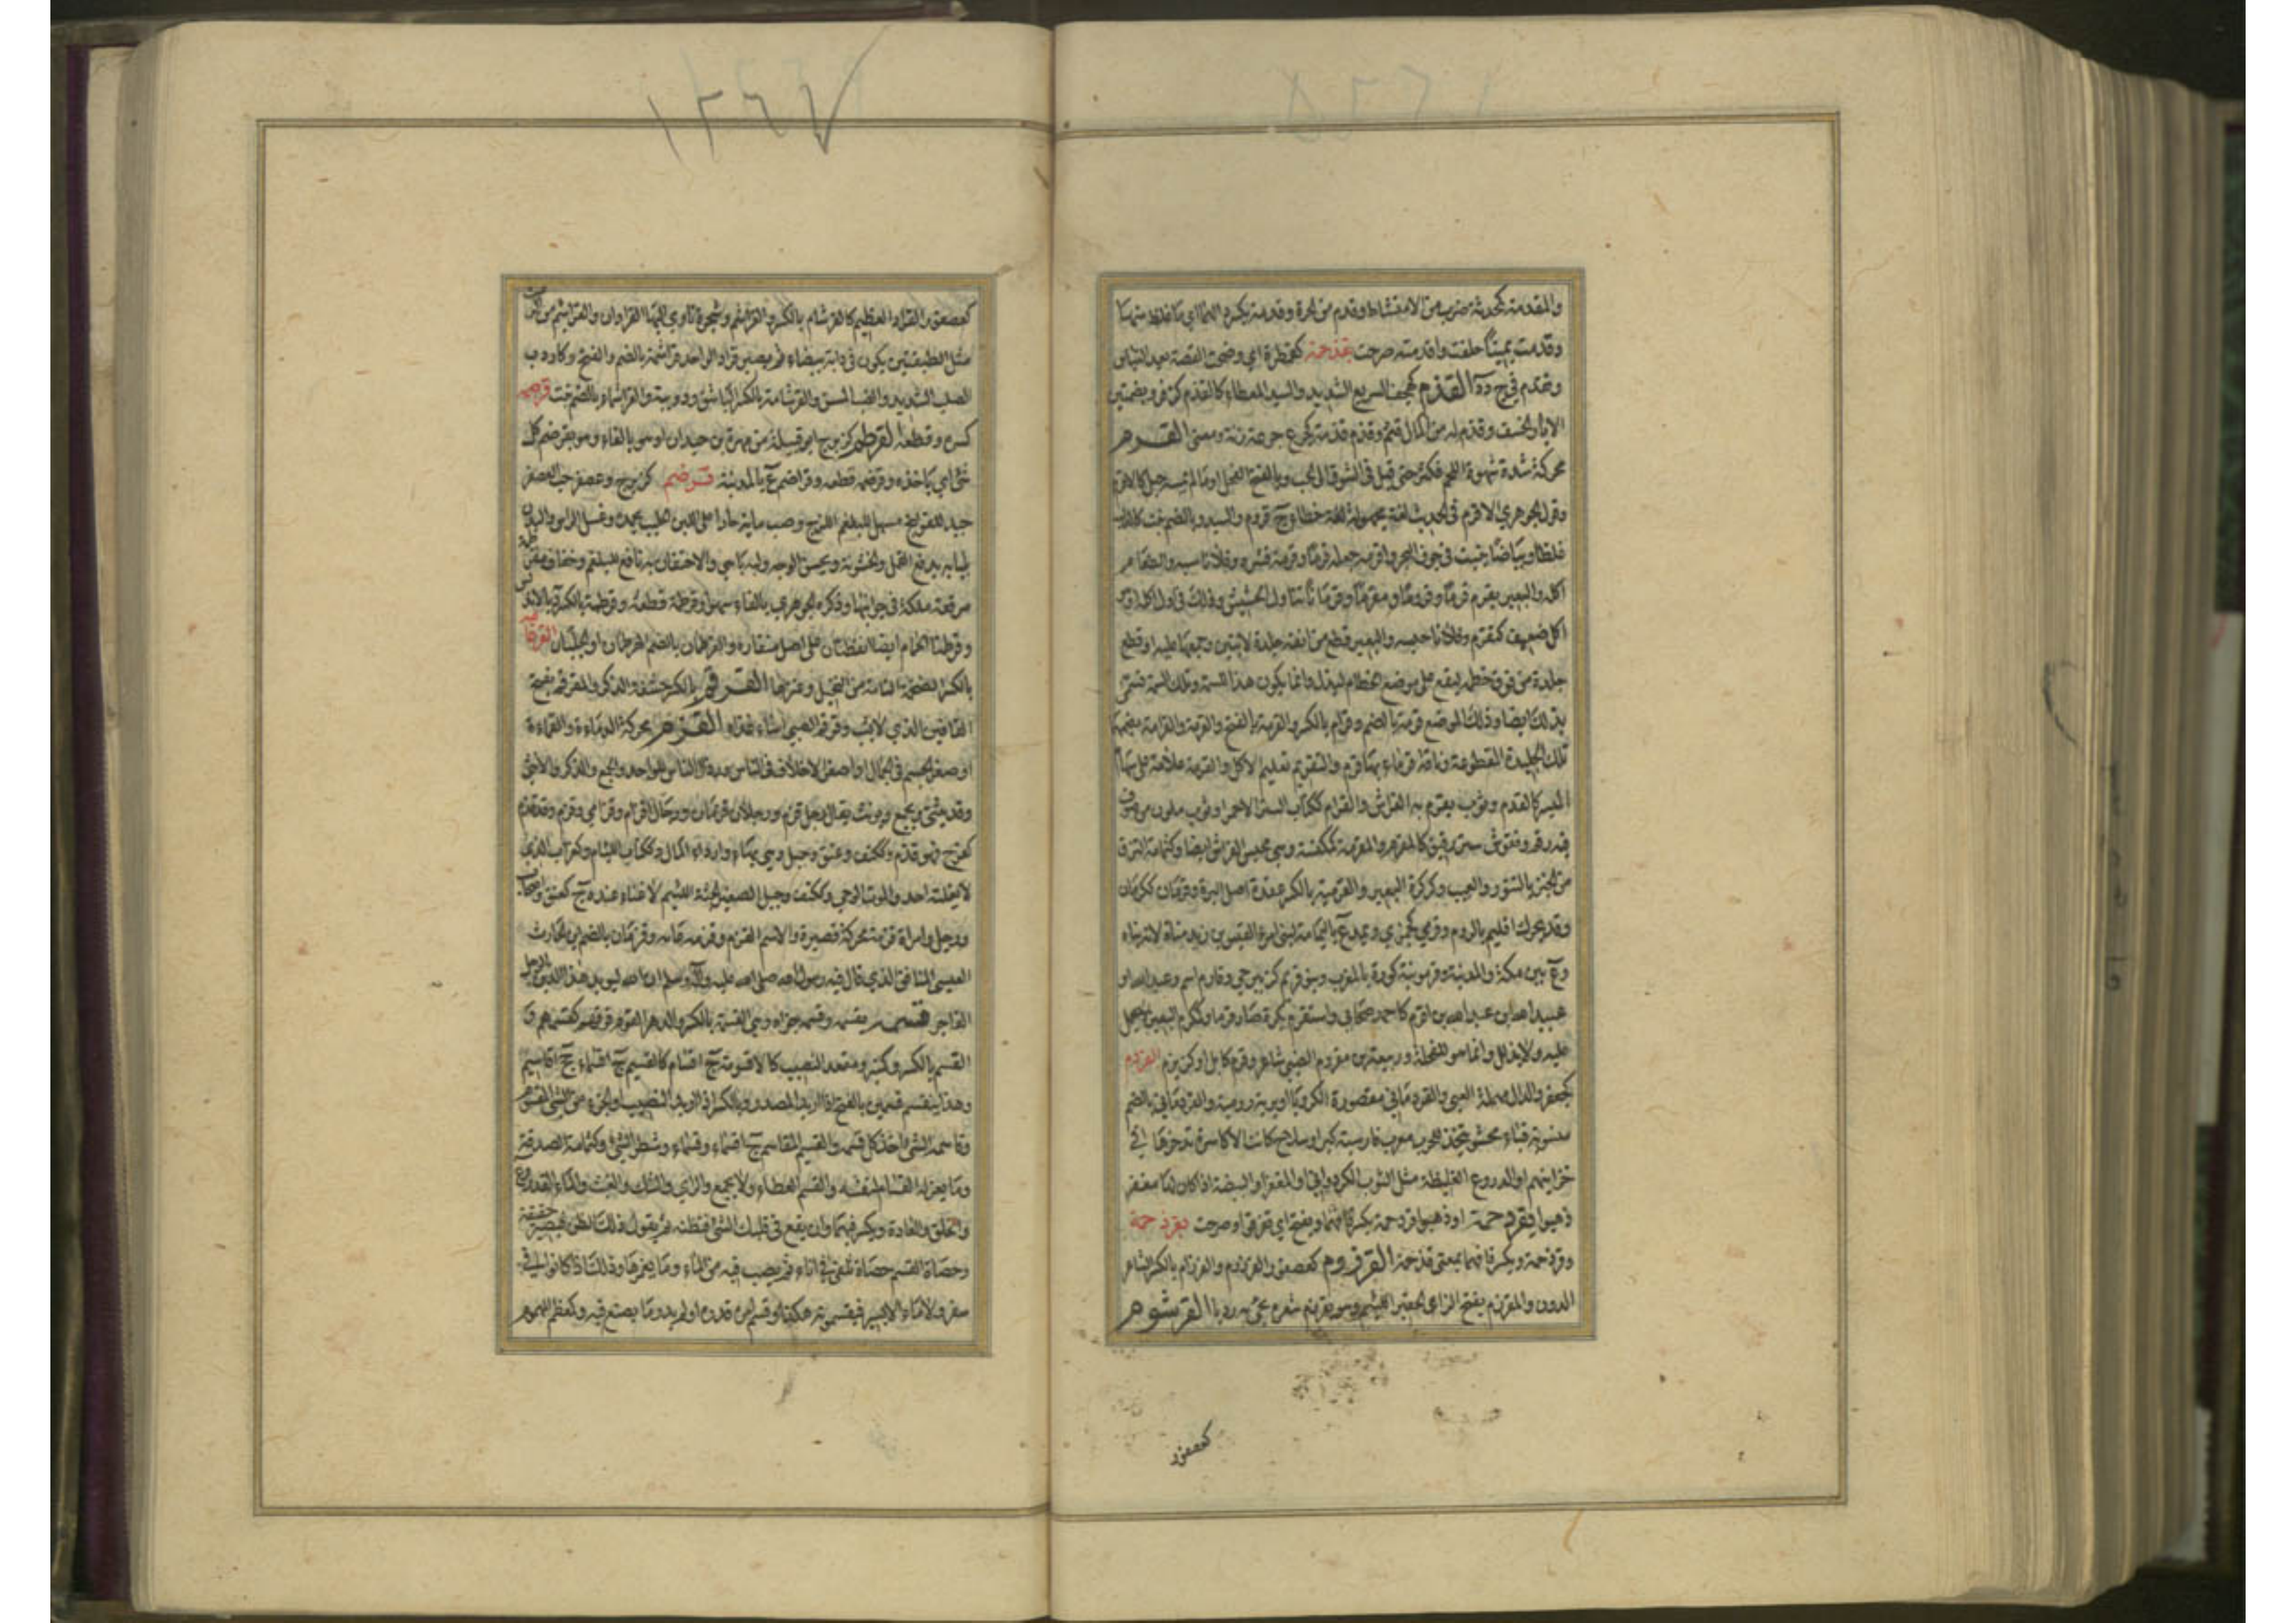 والمقدمة كمحدثة ضرب من الامتشاط وقدم من الحرة وقدمة بكسرهما اي ما غلظ منها
وقدمت يمينا حلفت واقدمته صرحت بقذحمة كقمطرة اي وضحت القصة بعد التباس
وتقدم في ج د د القذم كهجف السريع الشديد والسيد المعطاء كالقذم كزفر وبضمتين
الابار الخسف وقذم له من المال قثم وقذم قذمة كجرع جرعة زنة ومعنى القرم
محركة شدة شهوة اللحم فكثر حتى قيل في الشوق الى الحبيب وبالفتح الفحل او ما لم يمسه حبل كالاقرم
وقول الجوهري الاقرم في الحديث لغة مجهولة خطاء ج قروم والسيد وبالضم نبت كالدلب
غلظا وبياضا ينبت في جوف البحر واقرمه جعله قرما وقرمه قشره وفلانا سبه والطعام
اكله والبعير يقرم قرما وقروما ومقرما وقرمانا تناول الحشيش وذلك في اول اكله او
اكل ضعيف كتقرم وفلانا حبسه والبعير قطع من انفه جلدة لا تبين وجمعها عليه او قطع
جلدة من فوق خطمه ليقع على موضع الخطام ليذل وانما يكون هذا للسمة وتلك السمة تسمى
بذلك ايضا وذلك الموضع قرمة بالضم وقرام بالكسر والقرمة بالفتح والقرمة والقرامة بضمهما
تلك الجليدة المقطوعة وناقة قرماء بها قرم والتقريم تعليم الاكل والقرمة علامة على سهام
الميسر كالقدم وثوب يقرم به الفراش والقرام ككتاب الستر الاحمر او ثوب ملون من صوف
فيه رقم ونقوش او ستر رقيق كالمقرم والمقرمة كمكنسة وهي محبس الفراش ايضا وكثمامة ما التزق
من الخبز بالتنور والعيب وكركرة البعير والقرمية بالكسر عقدة اصل البرة وقرمان ككرمان
وقد يحرك اقليم بالروم وقرمى كجمزى ويمد ع باليمامة لبني امرئ القيس بن زيد مناة لانه بناه
وع بين مكة والمدينة وقرمونية كورة بالمغرب وبنو قريم كزبير حي وقارم اسم وعبد الله او
عبيد الله بن عبد الله بن اقرم كاحمد صحابي واستقرم بكره صار قرما وكمكرم البعير لا يحمل
عليه ولا يذلل وانما هو للفحلة وربيعة بن مقروم الضبي شاعر وقرم كابل او كنزيزم القردم
كجعفر والدال مهملة العيي والقردماني مقصورة الكرويا او برية رومية والقردماني بالضم
منسوبة قباء محشو يتخذ للحرب معرب فارسيته كبر او سلاح كانت الاكاسرة تدخرها في
خزائنهم او الدروع الغليظة مثل الثوب الكردواني او المغفر او البيضة اذا كان لها مغفر
ذهبوا بقردحمة او ذهبوا قردحمة بكسر قافهما وبفتح اي تفرقوا وصرحت بقرذحمة
وقرذحمة وبكسر قافهما بمعنى قذحمة القرزوم كعصفور والقرزوم والقرزام بالكسر الشاعر
الدون والمقرزم بفتح الزاي الحقير اللئيم وهو يقرزم شعره يجئ به رديا القرشوم
كعصفور
١٢٦٧
كعصفور القراد العظيم كالقرشام بالكسر والقراشم وشجرة تاوي اليها القردان والقراشم من الابن
مثل الطبقتين يكون في دابة بيضاء ثم يصير قرادا الواحد قراشمة بالضم والفتح وكاردب
الصلب الشديد والضب المسن والقرشامة بالكسر الباشق ودويبة والقراشماء بالضم نبت قرصمه
كسره وقطعه القرضم كزبرج ابو قبيلة من مهرة بن حيدان او هو بالفاء وهو يقرضم كل
شئ اي ياخذه وقرضمه قطعه وقراضم ع بالمدينة القرطم كزبرج وعصفر حب العصفر
جيد للقولنج مسهل للبلغم اللزج وصب مائه حارا على اللبن الحليب يجمده وغسل الراس والبدن
بلبابه يدفع القمل والخشونة ويحسن الوجه ولبه باهي والاحتقان به نافع للبلغم وخفاف مقرطمة
مرقعة ملكة في جوانبها وذكره الجوهري بالفاء سهوا وقرطمه قطعه وقرطمة بالكسر د بالاندلس
وقرطمتا الحمام ايضا نقطتان على اصل منقاره والقرطمان بالضم الهرطمان او الجلبان القرقامة
بالكسر الضخمة التامة من النخيل وغيرها القرقم بالكسر حشفة الذكر والمقرقم بفتح
القافين الذي لا يشب وقرقم الصبي اساء غذاه القزم محركة الدناءة والقماءة
او صغر الجسم في المال او صغر الاخلاق في الناس ورذال الناس للواحد والجمع والذكر والانثى
وقد يثنى ويجمع ويونث يقال رجل قزم ورجلان قزمان ورجال اقزام وقزامى وقزم وقد قزم
كفرح فهو قزم وككتف وعنق وجبل وهي بهاء وارداء المال وككتاب اللئام وكغراب الذي
لا يغلبه احد والموت الوحي وككتف وجبل الصغير الجثة اللئيم لا غناء عنده ج كعنق واصحاب
ورجل وامراة قزمة محركة قصيرة والاسم القزم وقزمه عابه وقزمان بالضم ابن الحارث
العبسي المنافق الذي قال فيه رسول الله صلى الله عليه وآله وسلم ان الله ليؤيد هذا الدين بالرجل
الفاجر قسمه يقسمه وقسمه جزاه وهي القسمة بالكسر والدهر القوم فرقهم كقسمهم و
القسم بالكسر وكمنبر ومقعد النصيب كالاقسومة ج اقسام كالقسيم ج اقسماء جج اقاسيم
وهذا ينقسم قسمين بالفتح اذا اريد المصدر وبالكسر اذا اريد النصيب والجزء من الشئ المقسوم
وقاسمه الشئ اخذ كل قسمه والقسيم المقاسم ج اقسماء وقسماء وشطر الشئ وكثمامة الصدقة
وما يعزله القسام لنفسه والقسم العطاء ولا يجمع والراي والشك والغيث والماء والقدر
والخلق والعادة ويكسر فيهما وان يقع في قلبك الشئ فتظنه ثم يقوى ذلك الظن فيصير حقيقة
وحصاة القسم حصاة تلقى في اناء ثم يصب فيه من الماء ما يغمرها وذلك اذا كانوا في
سفر ولا ماء الا يسير فيقسمونه هكذا وقسم امره قدره او لم يدر ما يصنع فيه وكمعظم المهموم